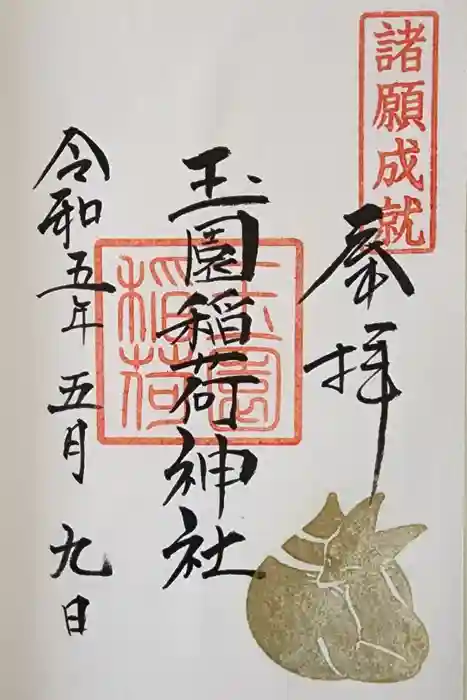 諸願成就
奉拝
玉園稲荷神社
玉園
稲荷
令和五年五月九日